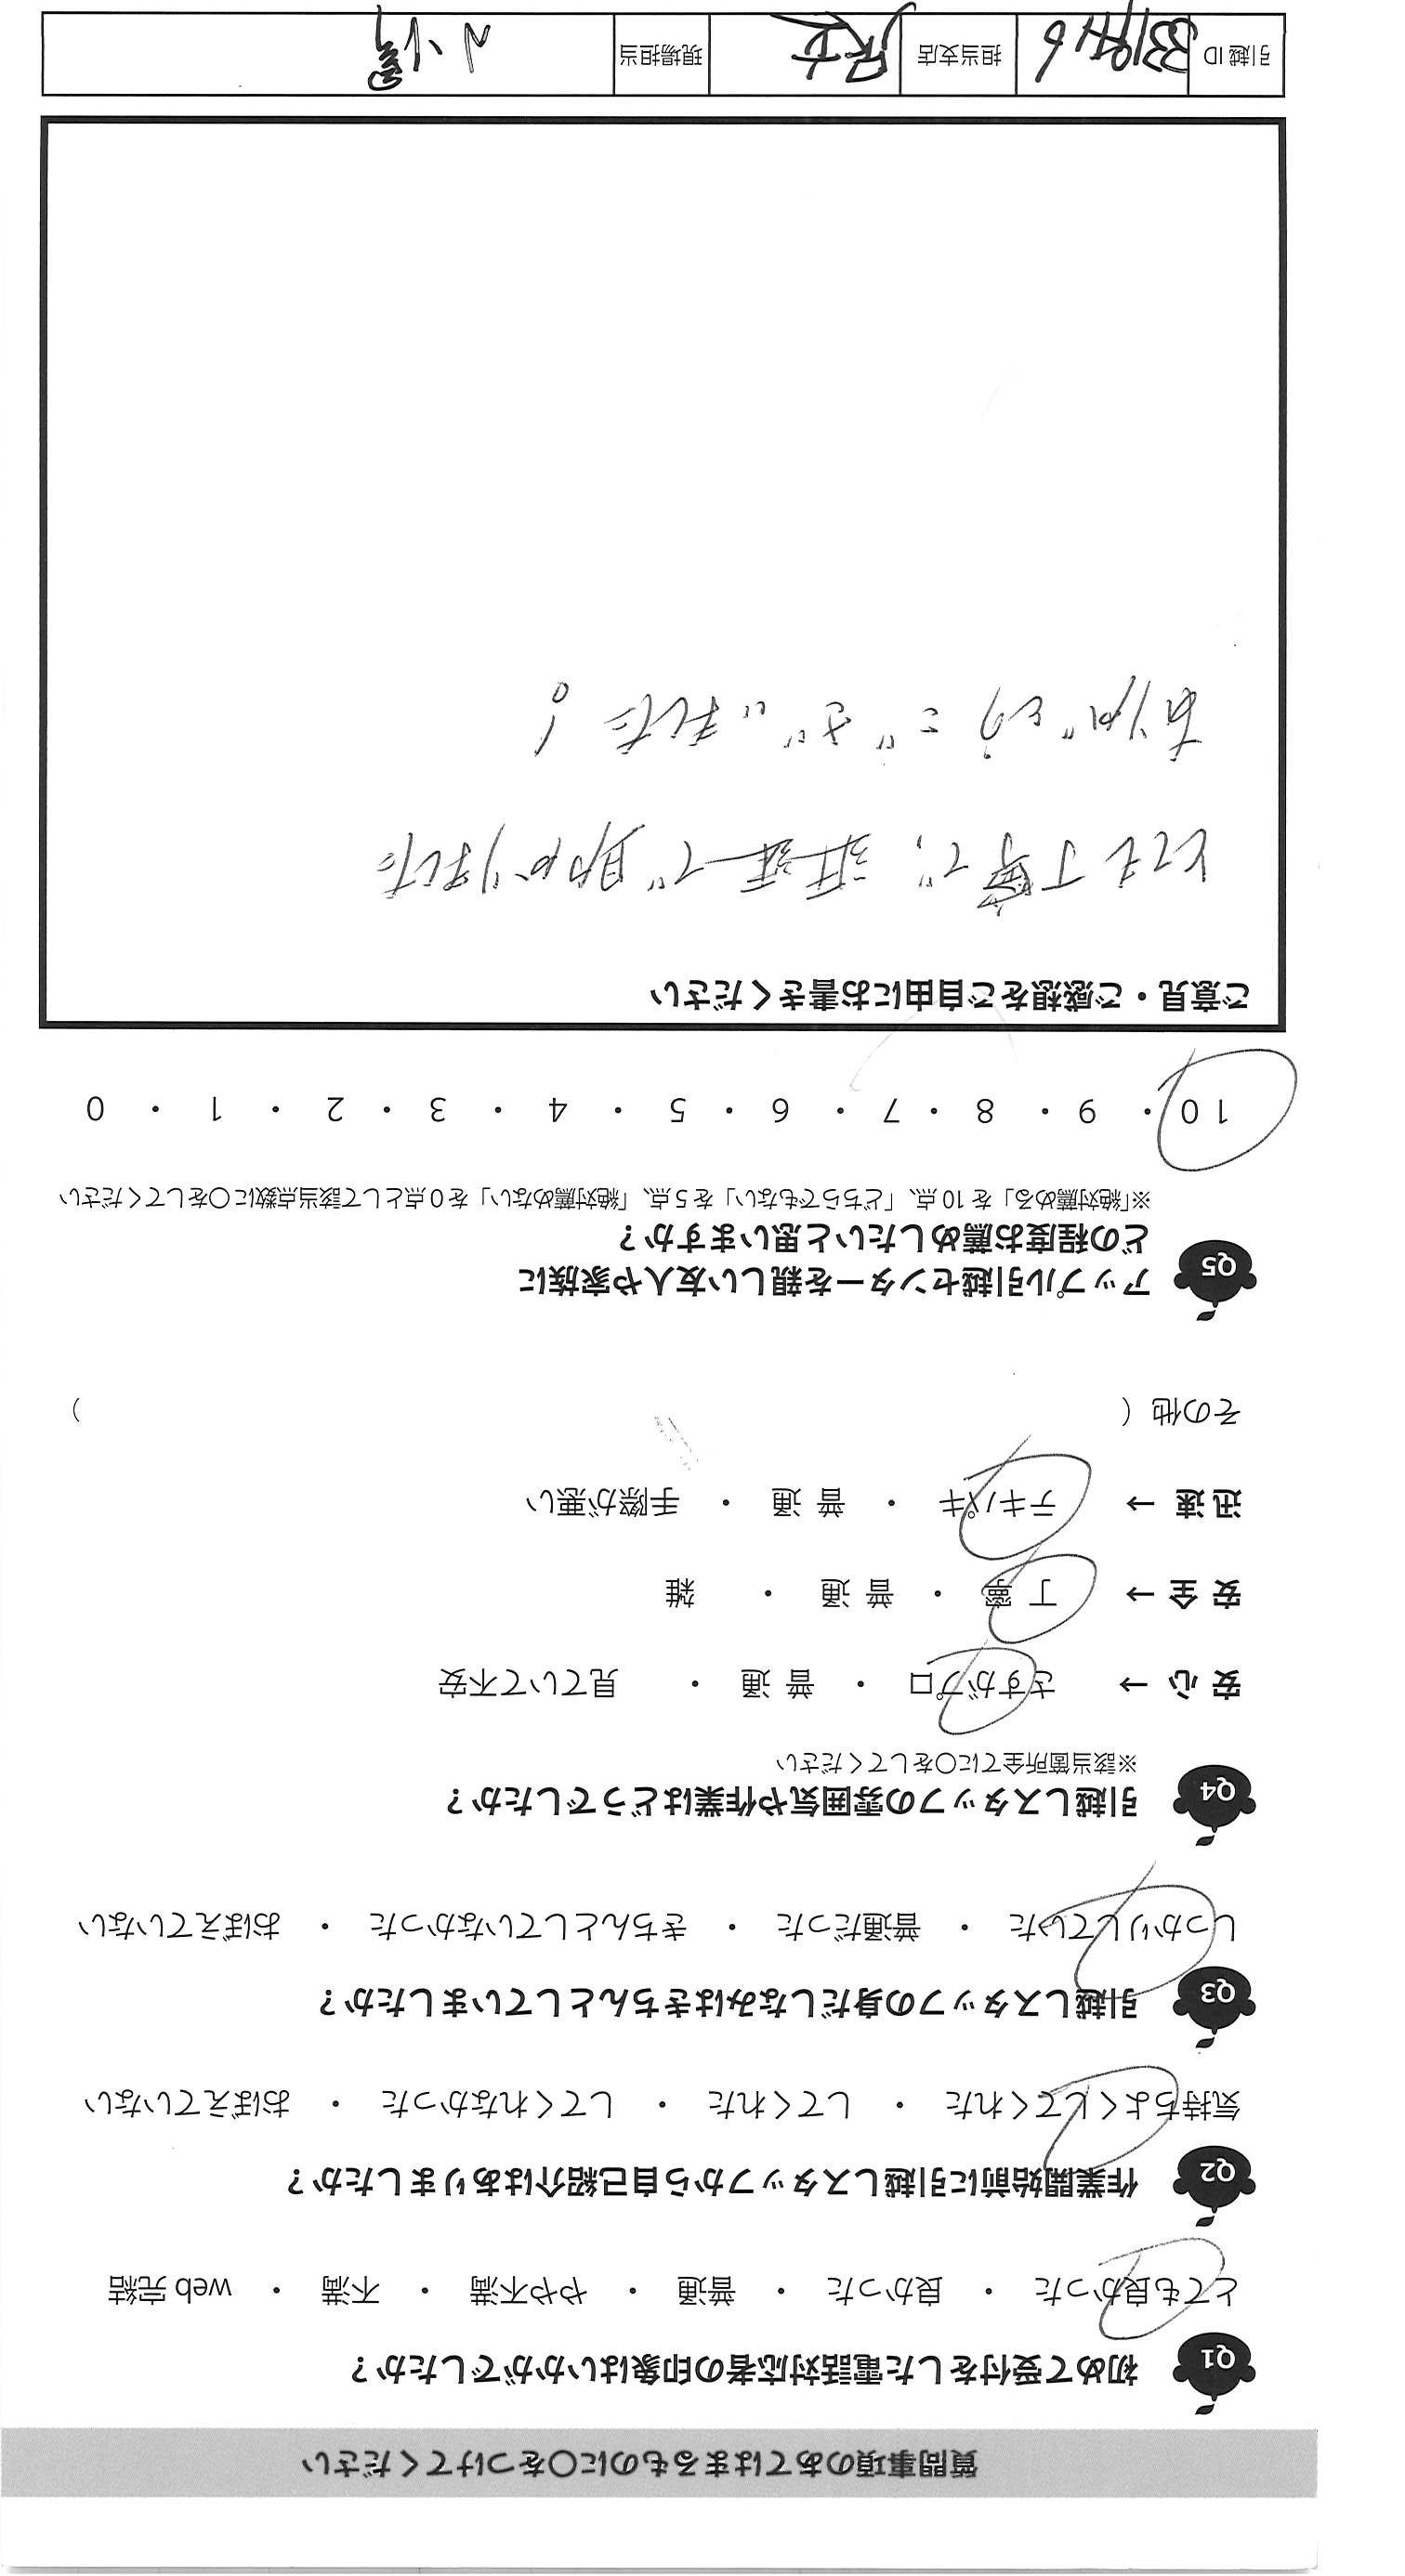 質問事項のあてはまるものに〇をつけてください
Q1 初めて受付をした電話対応者の印象はいかがでしたか？
とても良かった ・ 良かった ・ 普通 ・ やや不満 ・ 不満 ・ web 完結
Q2 作業開始前に引越しスタッフから自己紹介はありましたか？
気持ちよくしてくれた ・ してくれた ・ してくれなかった ・ おぼえていない
Q3 引越しスタッフの身だしなみはきちんとしていましたか？
しっかりしていた ・ 普通だった ・ きちんとしていなかった ・ おぼえていない
Q4 引越しスタッフの雰囲気や作業はどうでしたか？
※該当箇所全てに〇をしてください
安 心 → さすがプロ ・ 普 通 ・ 見ていて不安
安 全 → 丁 寧 ・ 普 通 ・ 雑
迅 速 → テキパキ ・ 普 通 ・ 手際が悪い
その他（ ）
Q5 アップル引越センターを親しい友人や家族に
どの程度お薦めしたいと思いますか？
※「絶対薦める」を 10 点、「どちらでもない」を 5 点、「絶対薦めない」を 0 点として該当点数に〇をしてください
10 ・ 9 ・ 8 ・ 7 ・ 6 ・ 5 ・ 4 ・ 3 ・ 2 ・ 1 ・ 0
ご意見・ご感想をご自由にお書きください
とても丁寧で、 で助かりました
ありがとうございました！。
引越 ID 担当支店 現場担当